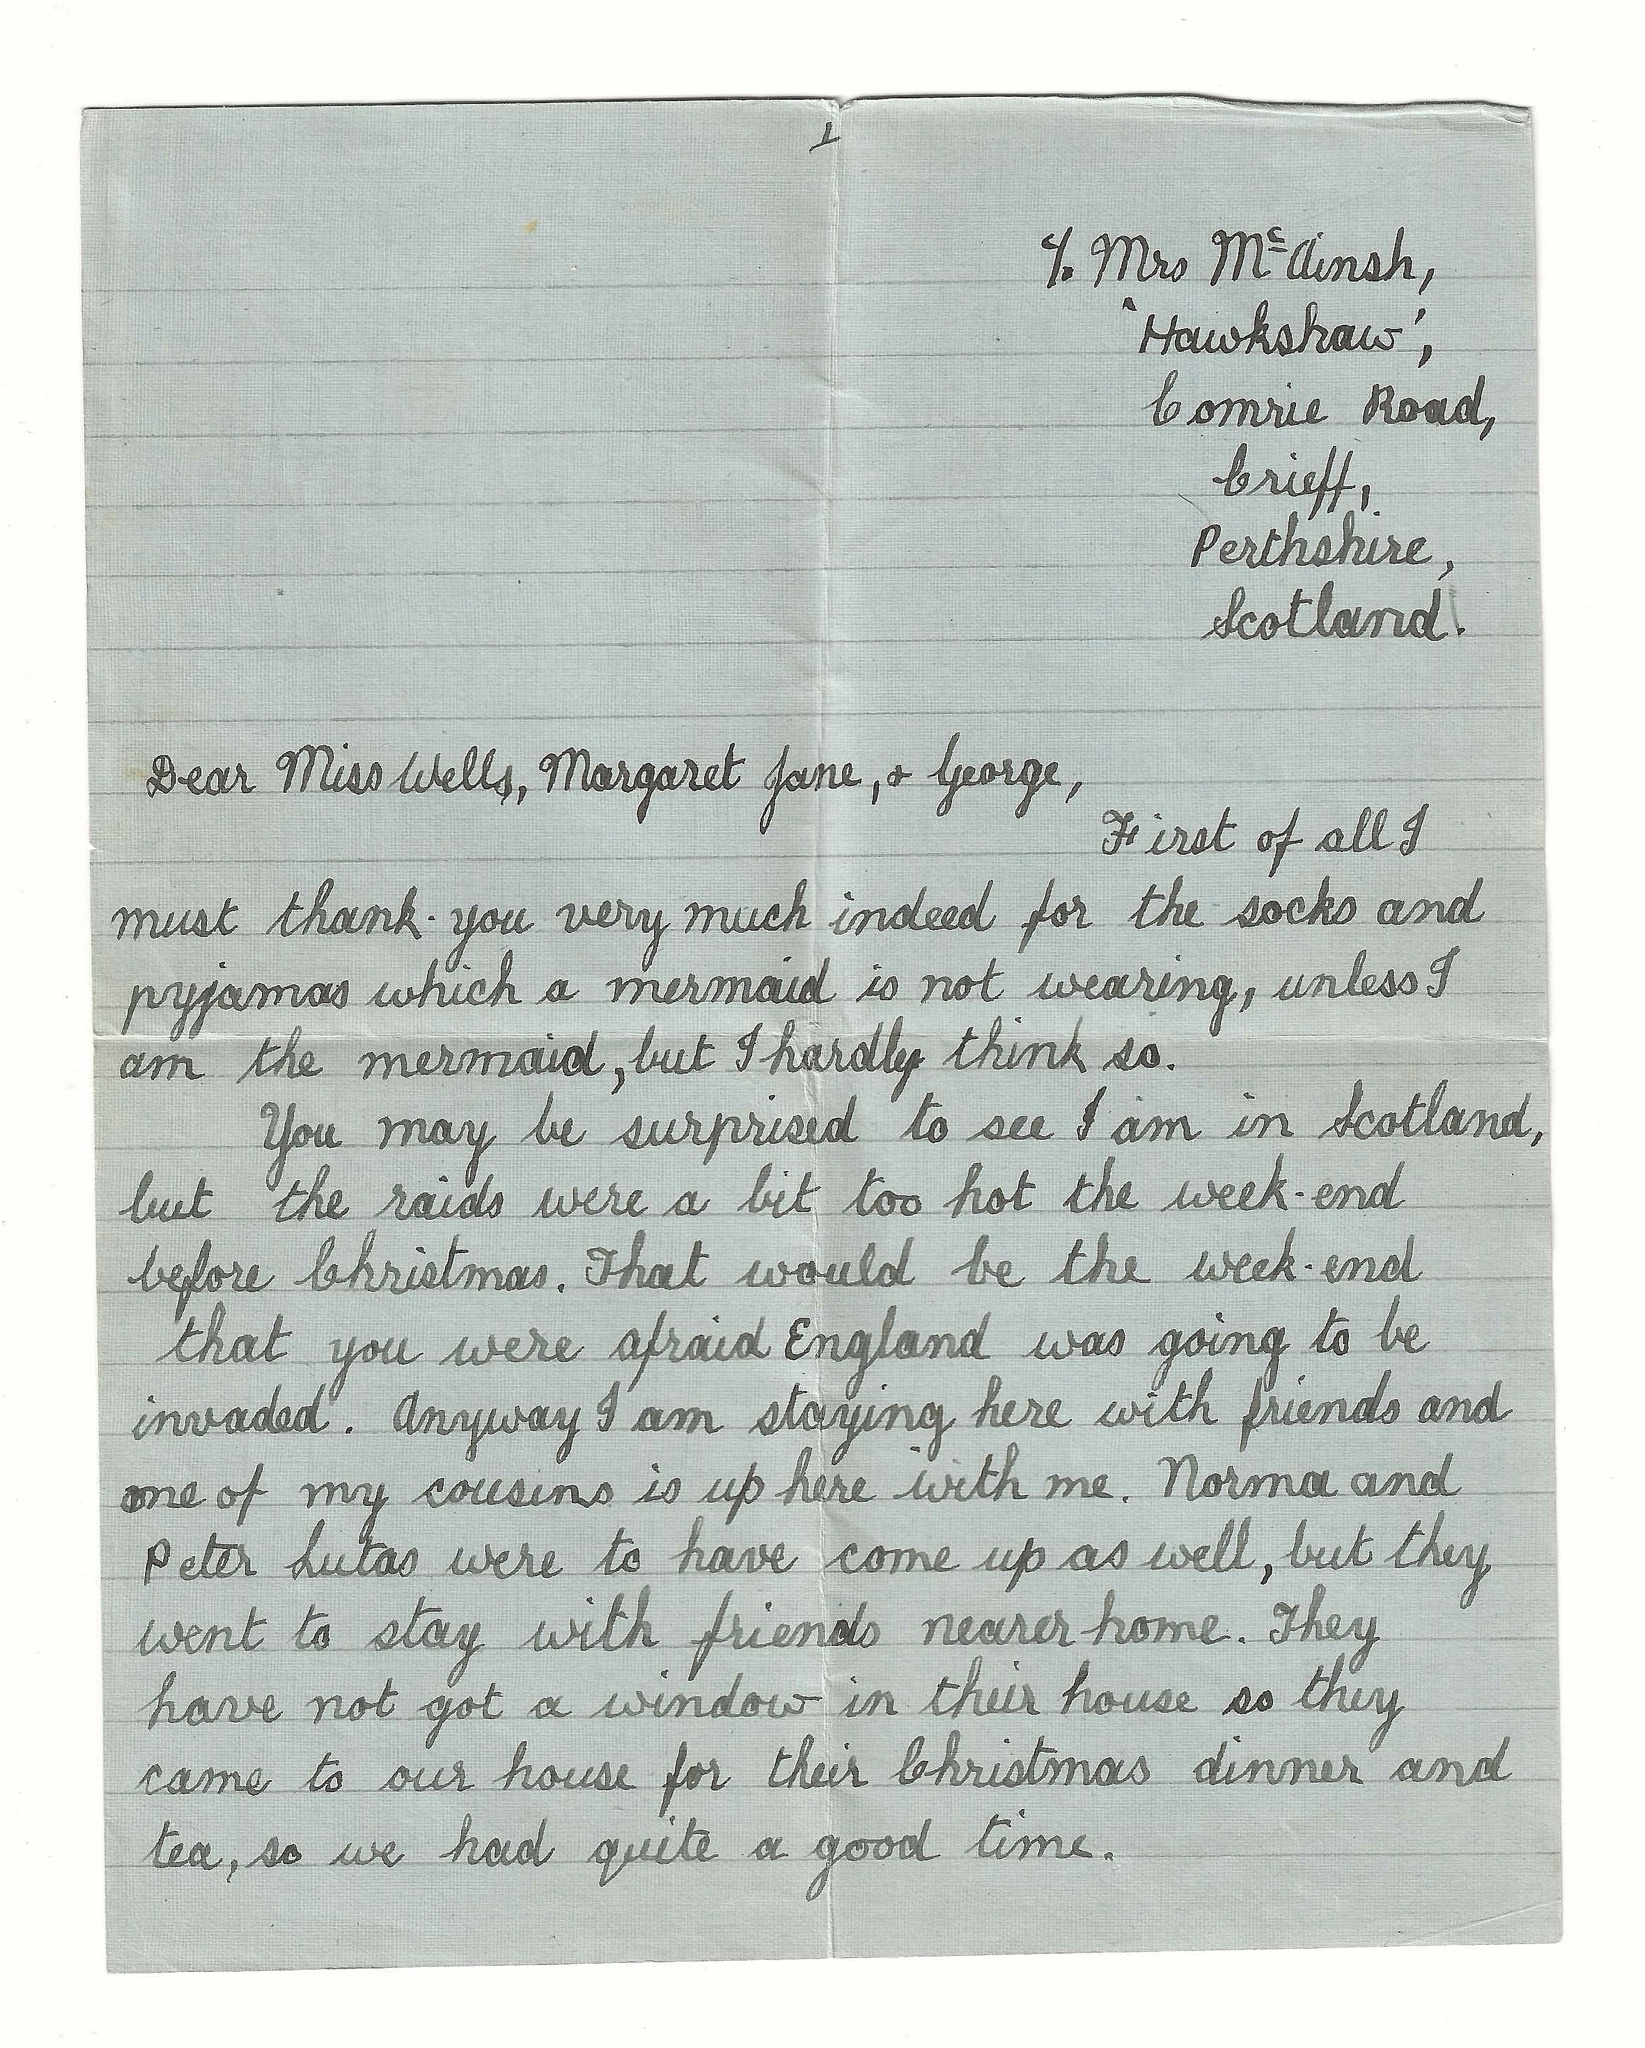 1
c/o Mrs McAinsh,
'Hawkshaw',
Comrie Road,
Crieff,
Perthshire,
Scotland.
Dear Miss Wells, Margaret Jane, & George,
First of all I
must thank-you very much indeed for the socks and
pyjamas which a mermaid is not wearing, unless I
am the mermaid, but I hardly think so.
You may be surprised to see I am in Scotland,
but the raids were a bit too hot the week-end
before Christmas. That would be the week-end
that you were afraid England was going to be
invaded. Anyway I am staying here with friends and
one of my cousins is up here with me. Norma and
Peter Lutas were to have come up as well, but they
went to stay with friends nearer home. They
have not got a window in their house so they
came to our house for their Christmas dinner and
tea, so we had quite a good time.